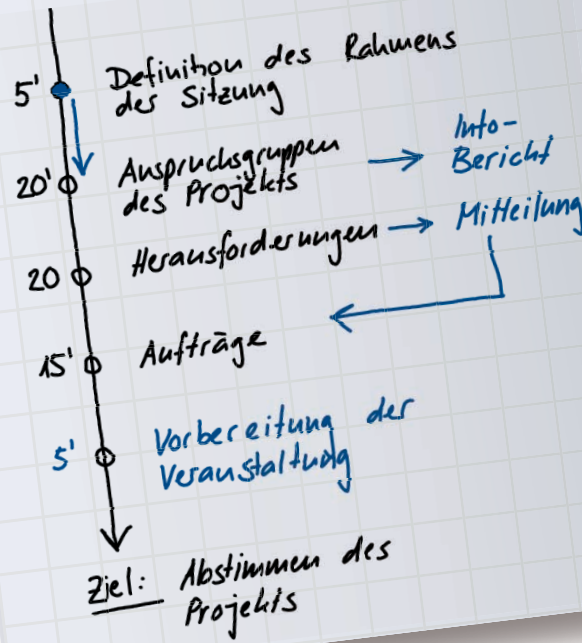 5' Definition des Rahmens
der Sitzung
20' Anspruchsgruppen
des Projekts
Info-
Bericht
20 Herausforderungen
Mitteilung
15' Aufträge
5' Vorbereitung der
Veranstaltung
Ziel: Abstimmen des
Projekts